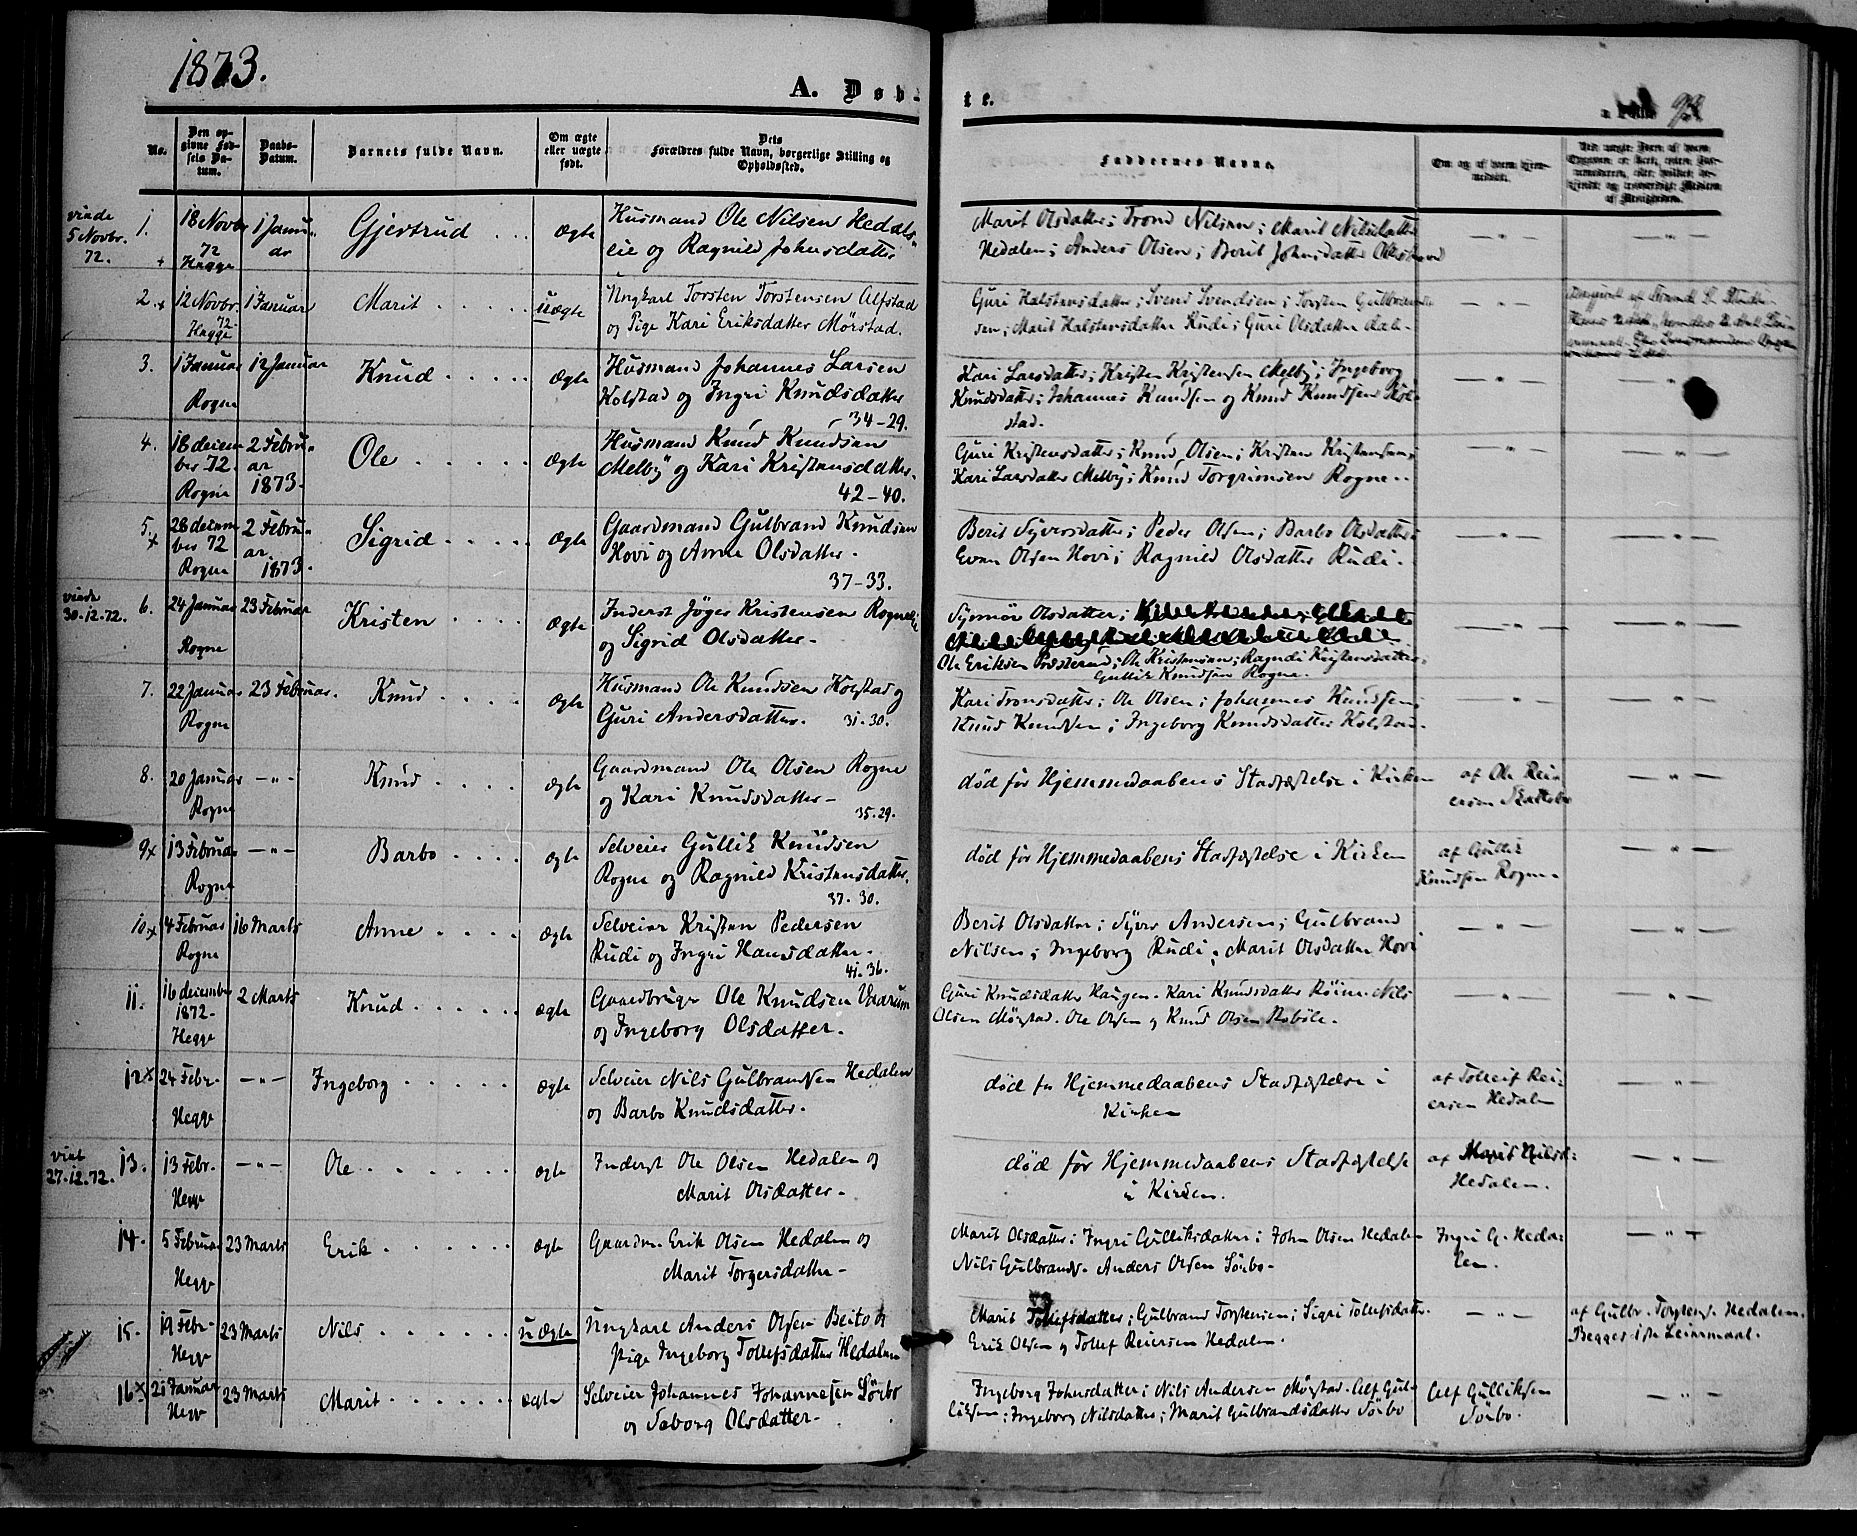 1873.
A. Døb-
te.
Folio
No.
Den op-
givne Fød-
sels Da-
tum.
Daabs-
Datum.
Barnets fulde Navn.
Om ægte
eller uægte
født.
Dets
Forældres fulde Navn, borgerlige Stilling og
Opholdssted.
Faddernes Navne.
Om og af hvem hjem-
medøbt.
5 Novbr.
72.
1.
18 Novbr
72
Hegge
1 Janu-
ar
Gjertrud
ægte
Husmand Ole Nilsen Hedals-
eie og Ragnild Johnsdatter
Marit Olsdatter; Trond Nilsen; Marit Nilsdatter
Hedalen; Anders Olsen; Berit Johnsdatter
2.
12 Novbr.
72
Hegge
1 Januar
Marit
uægte
Ungkarl Torsten Torstensen Alfstad
og Pige Kari Eriksdatter Mørstad.
Guri Halstensdatter; Svend Svendsen; Torsten Gulbrand-
sen; Marit Halstensdatter Rudi; Guri Olsdatter
3.
1 Januar
Rogne
12 Januar
Knud
ægte
Husmand Johannes Larsen
Kolstad og Ingri Knudsdatter
34-29.
Kari Larsdatter; Kristen Kristensen Melby; Ingeborg
Knudsdatter; Johannes Knudsen og Knud Knudsen Kol-
stad.
4.
18 decem
ber 72.
Rogne
2 Febru-
ar
1873.
Ole
ægte
Husmand Knud Knudsen
Melby og Kari Kristensdatter
42-40.
Guri Kristensdatter; Knud Olsen; Kristen Kristensen;
Kari Larsdatter Melby; Knud Torgrimsen Rogne.
5.
28 decem
ber 72
Rogne
2 Febru-
ar
1873.
Sigrid
ægte
Gaardmand Gulbrand Knudsen
Hovi og Anne Olsdatter.
37-33.
Berit Syversdatter; Peder Olsen; Barbo Olsdatter;
Even Olsen Hovi; Ragnild Olsdatter Rudi.
30.12.72.
6.
24 Januar
Rogne
23 Februar
Kristen
ægte
Inderst Jøger Kristensen Rogneeie
og Sigrid Olsdatter.
Synnør Olsdatter;
Ole Eriksen Præsterud; Ole Kristensen; Ragndi Kristensdatter;
Gullik Knudsen Rogne.
7.
22 Januar
Rogne
23 Februar.
Knud
ægte
Husmand Ole Knudsen Kolstad og
Guri Andersdatter. 31-30.
Kari Tronsdatter; Ole Olsen; Johannes Knudsen;
Knud Knudsen; Ingeborg Knudsdatter Kolstad.
8.
20 Januar
Rogne
Knud
ægte
Gaardmand Ole Olsen Rogne
og Kari Knudsdatter
35-29.
død før Hjemmedaabens Stadfæstelse i Kirken
af Ole Rei-
ersen
9
13 Februar
Rogne
Barbo
ægte
Selveier Gullik Knudsen
Rogne og Ragnild Kristensdatter.
37-30.
død før Hjemmedaabens Stadfæstelse i Kirken
af Gullik
Knudsen Rogne.
10
4 Februar
Rogne
16 Marts
Anne
ægte
Selveier Kristen Pedersen
Rudi og Ingri Hansdatter.
41-36.
Berit Olsdatter; Syver Andersen; Gulbrand
Nilsen; Ingeborg Rudi; Marit Olsdatter Hovi
11.
16 december
1872.
Hegge
2 Marts
Knud
ægte
Gaardbruger Ole Knudsen Vaarum
og Ingeborg Olsdatter.
Guri Knudsdatter Haugen. Kari Knudsdatter Röine. Nils
Olsen Mørstad. Ole Olsen og Knud Olsen Robøle.
12
24 Febr.
Hegge
Ingeborg
ægte
Selveier Nils Gulbrandsen Hedalen
og Barbo Knudsdatter.
død før Hjemmedaabens Stadfæstelse i
Kirken
af Tolleif Rei-
ersen Hedalen
27.12.72.
13.
13 Febr.
Hegge
Ole
ægte
Inderst Ole Olsen Hedalen og
Marit Olsdatter.
død før Hjemmedaabens Stadfæstelse
i Kirken.
af Marit Nilsd.
Hedalen.
14.
5 Februar
Hegge
23 Marts
Erik
ægte
Gaardm. Erik Olsen Hedalen og
Marit Torgersdatter
Marit Olsdatter; Ingri Gulliksdatter; John Olsen Hedalen
Nils Gulbrands. Anders Olsen Sörbo.
Ingri G. Heda-
len.
15.
19 Febr.
Hegge
23 Marts
Nils
uægte
Ungkarl Anders Olsen Beito og
Pige Ingeborg Tollefsdatter Hedalen
Marit Tollefsdatter; Gulbrand Torstensen; Sigri Tollefsdatter.
Erik Olsen og Tollef Reiersen Hedalen.
af Gulbr. Torstens. Hedalen.
Begges 1ste Leiermaal.
16
21 Januar
Hegg
23 Marts
Marit
ægte
Selveier Johannes Johannesen Sörbo
og Seborg Olsdatter.
Ingeborg Johnsdatter; Nils Andersen Mørstad. Alf Gul-
liksen; Ingeborg Nilsdatter; Marit Gulbrandsdatter Sörbo
Alf Gulliksen
Sörbo.